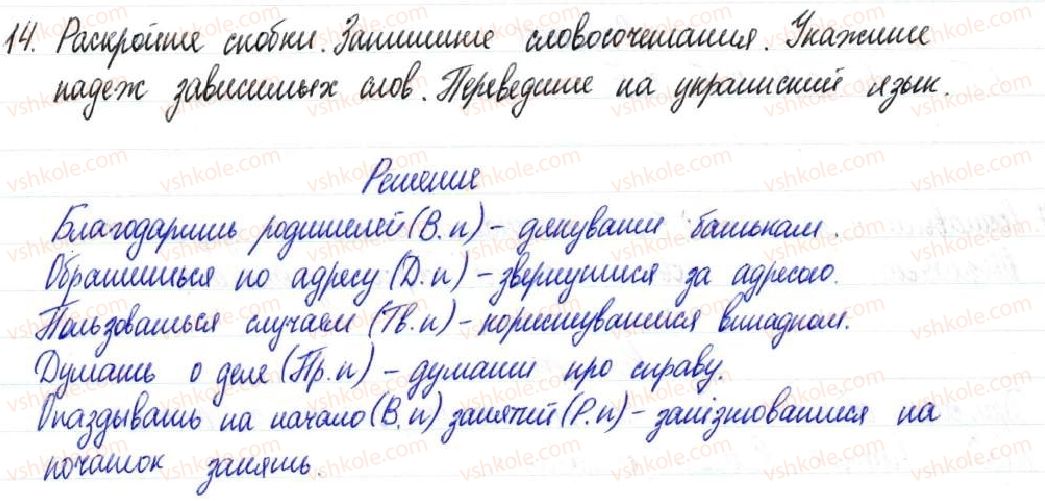 14. Раскройте скобки. Запишите словосочетания. Укажите
падеж зависимых слов. Переведите на украинский язык.
Решение
Благодарить родителей (В.п) - дякувати батькам.
Обратиться по адресу (Д.п) - звернутися за адресою.
Пользоваться случаем (Тв.п) - користуватися випадком.
Думать о деле (Пр.п) - думати про справу.
Опаздывать на начало (В.п) занятий (Р.п) - запізнюватися на
початок занять.